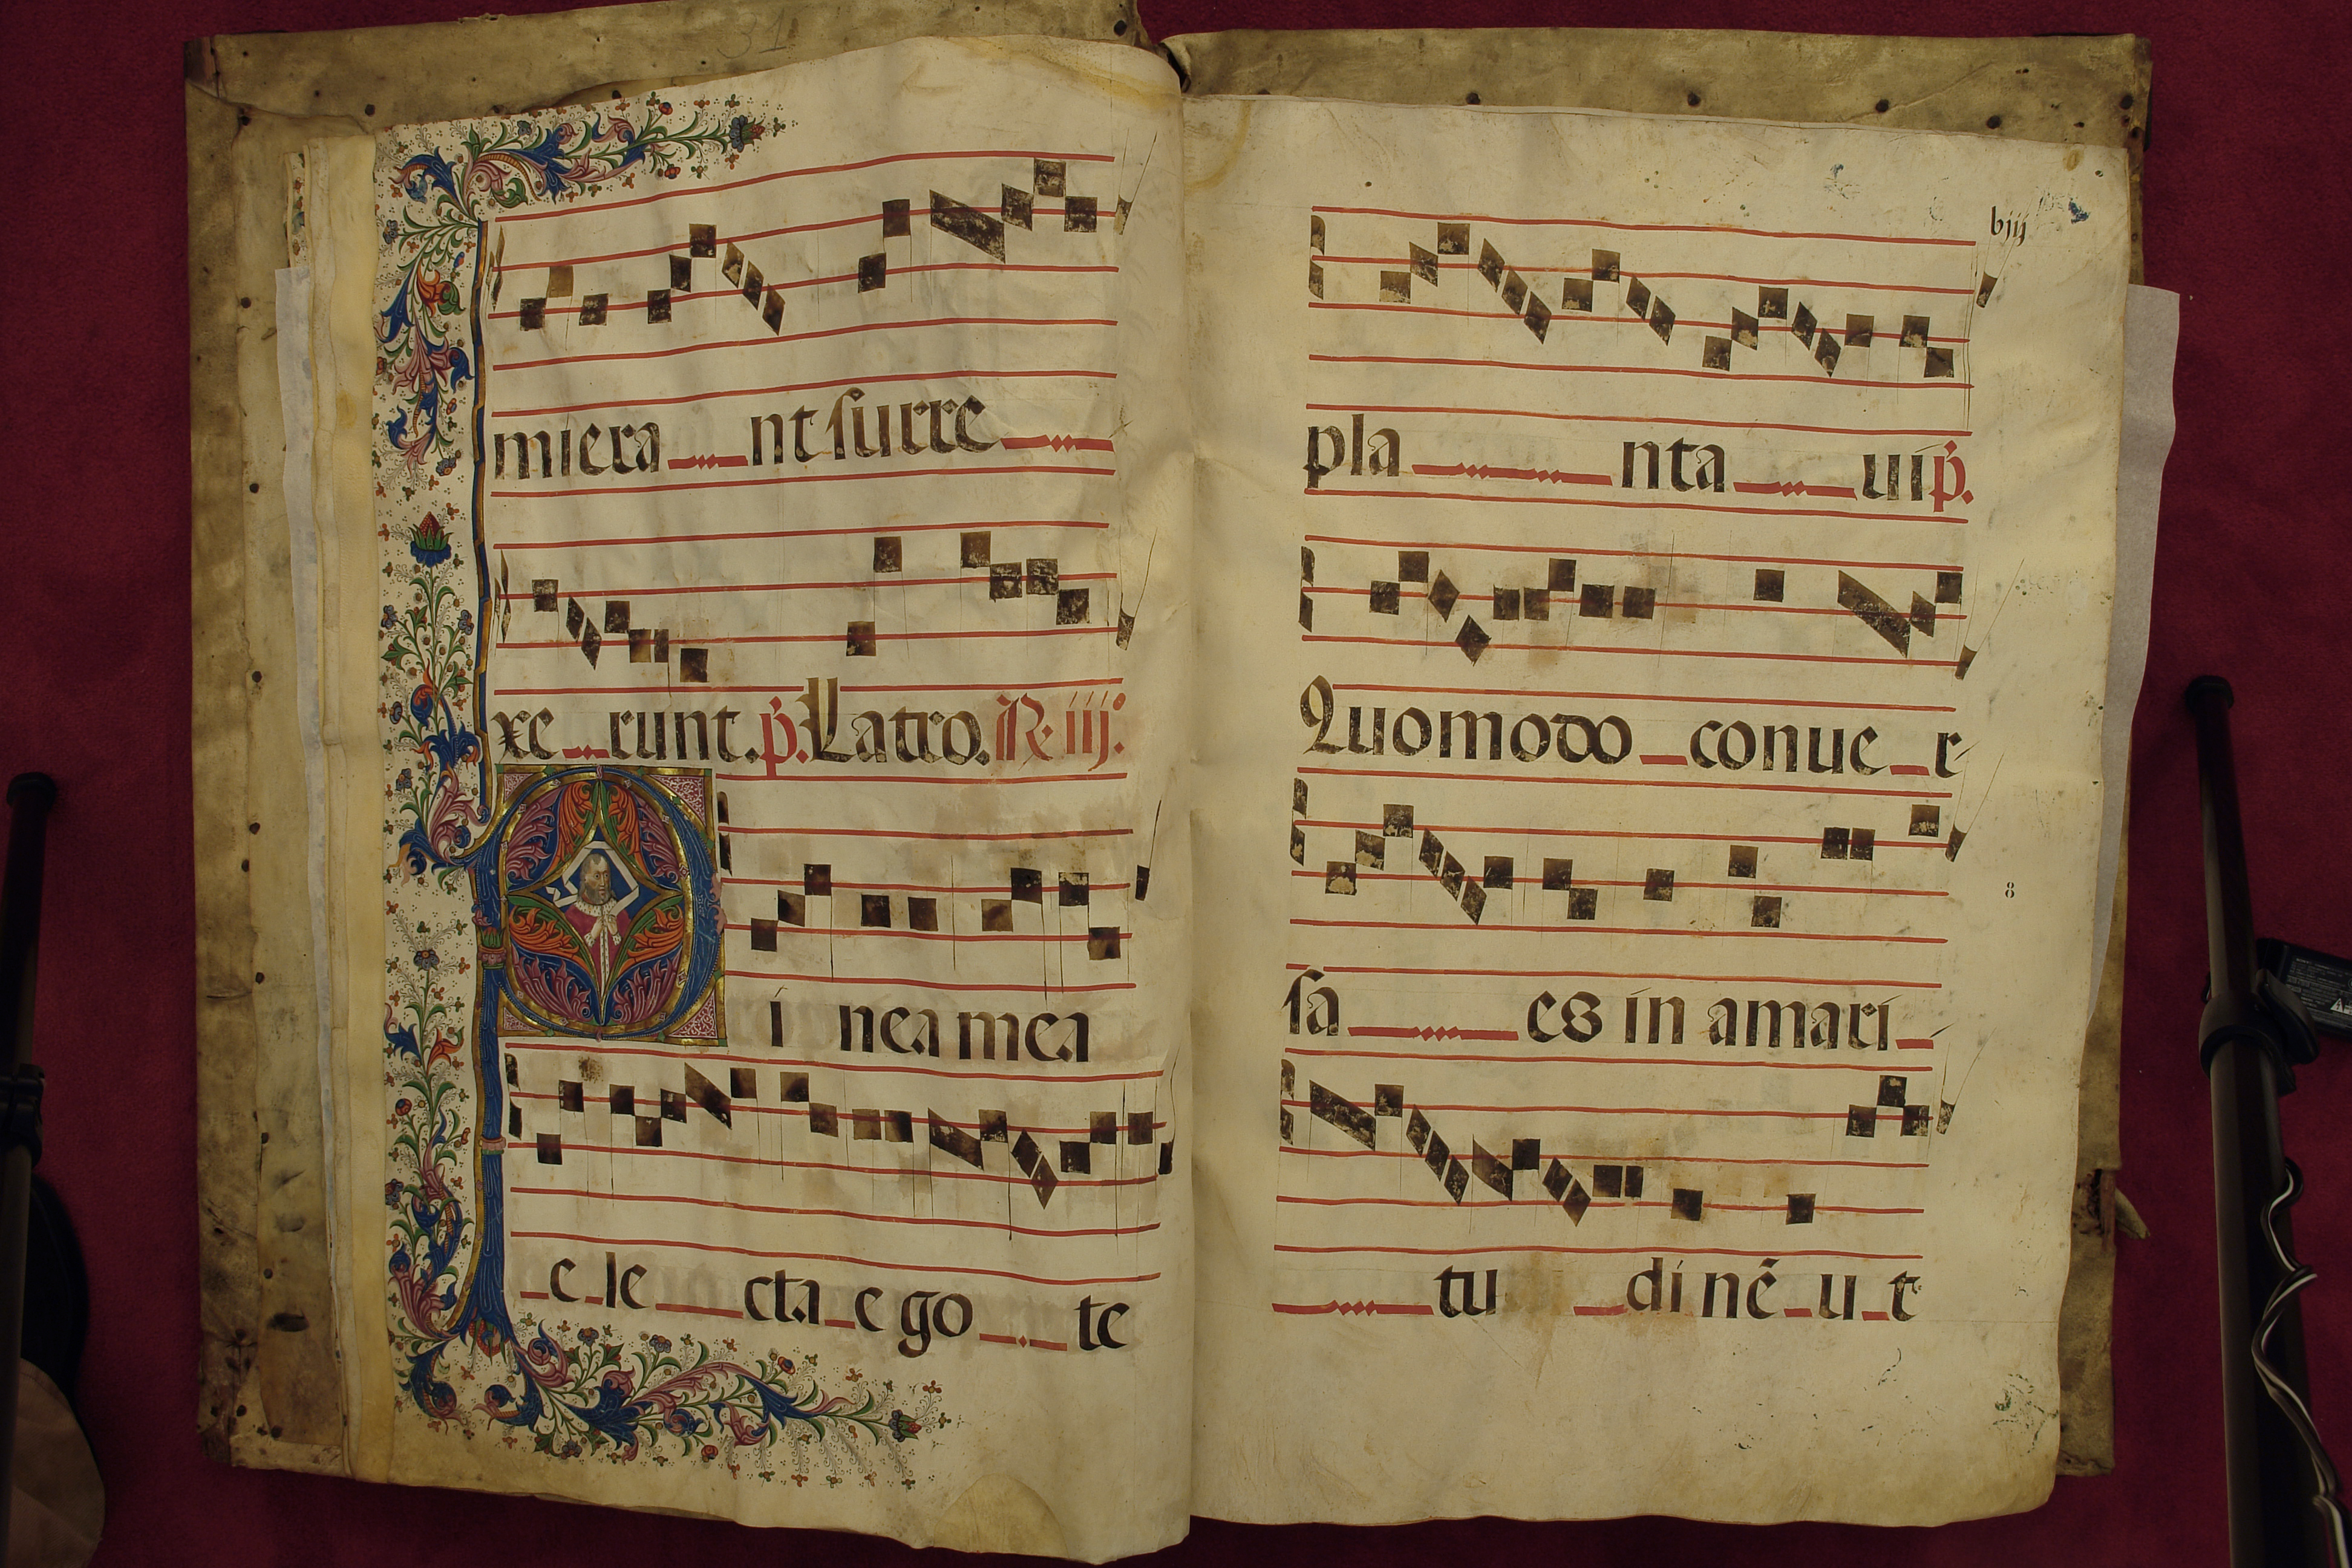 31
miera nt surre
xe runt. p̄. Latro. R. iij:
V i nea mea
e le cta e go te
biij
pla nta ui p̄.
Quomodo conue r
8
sa es in amari
tu di nē u t